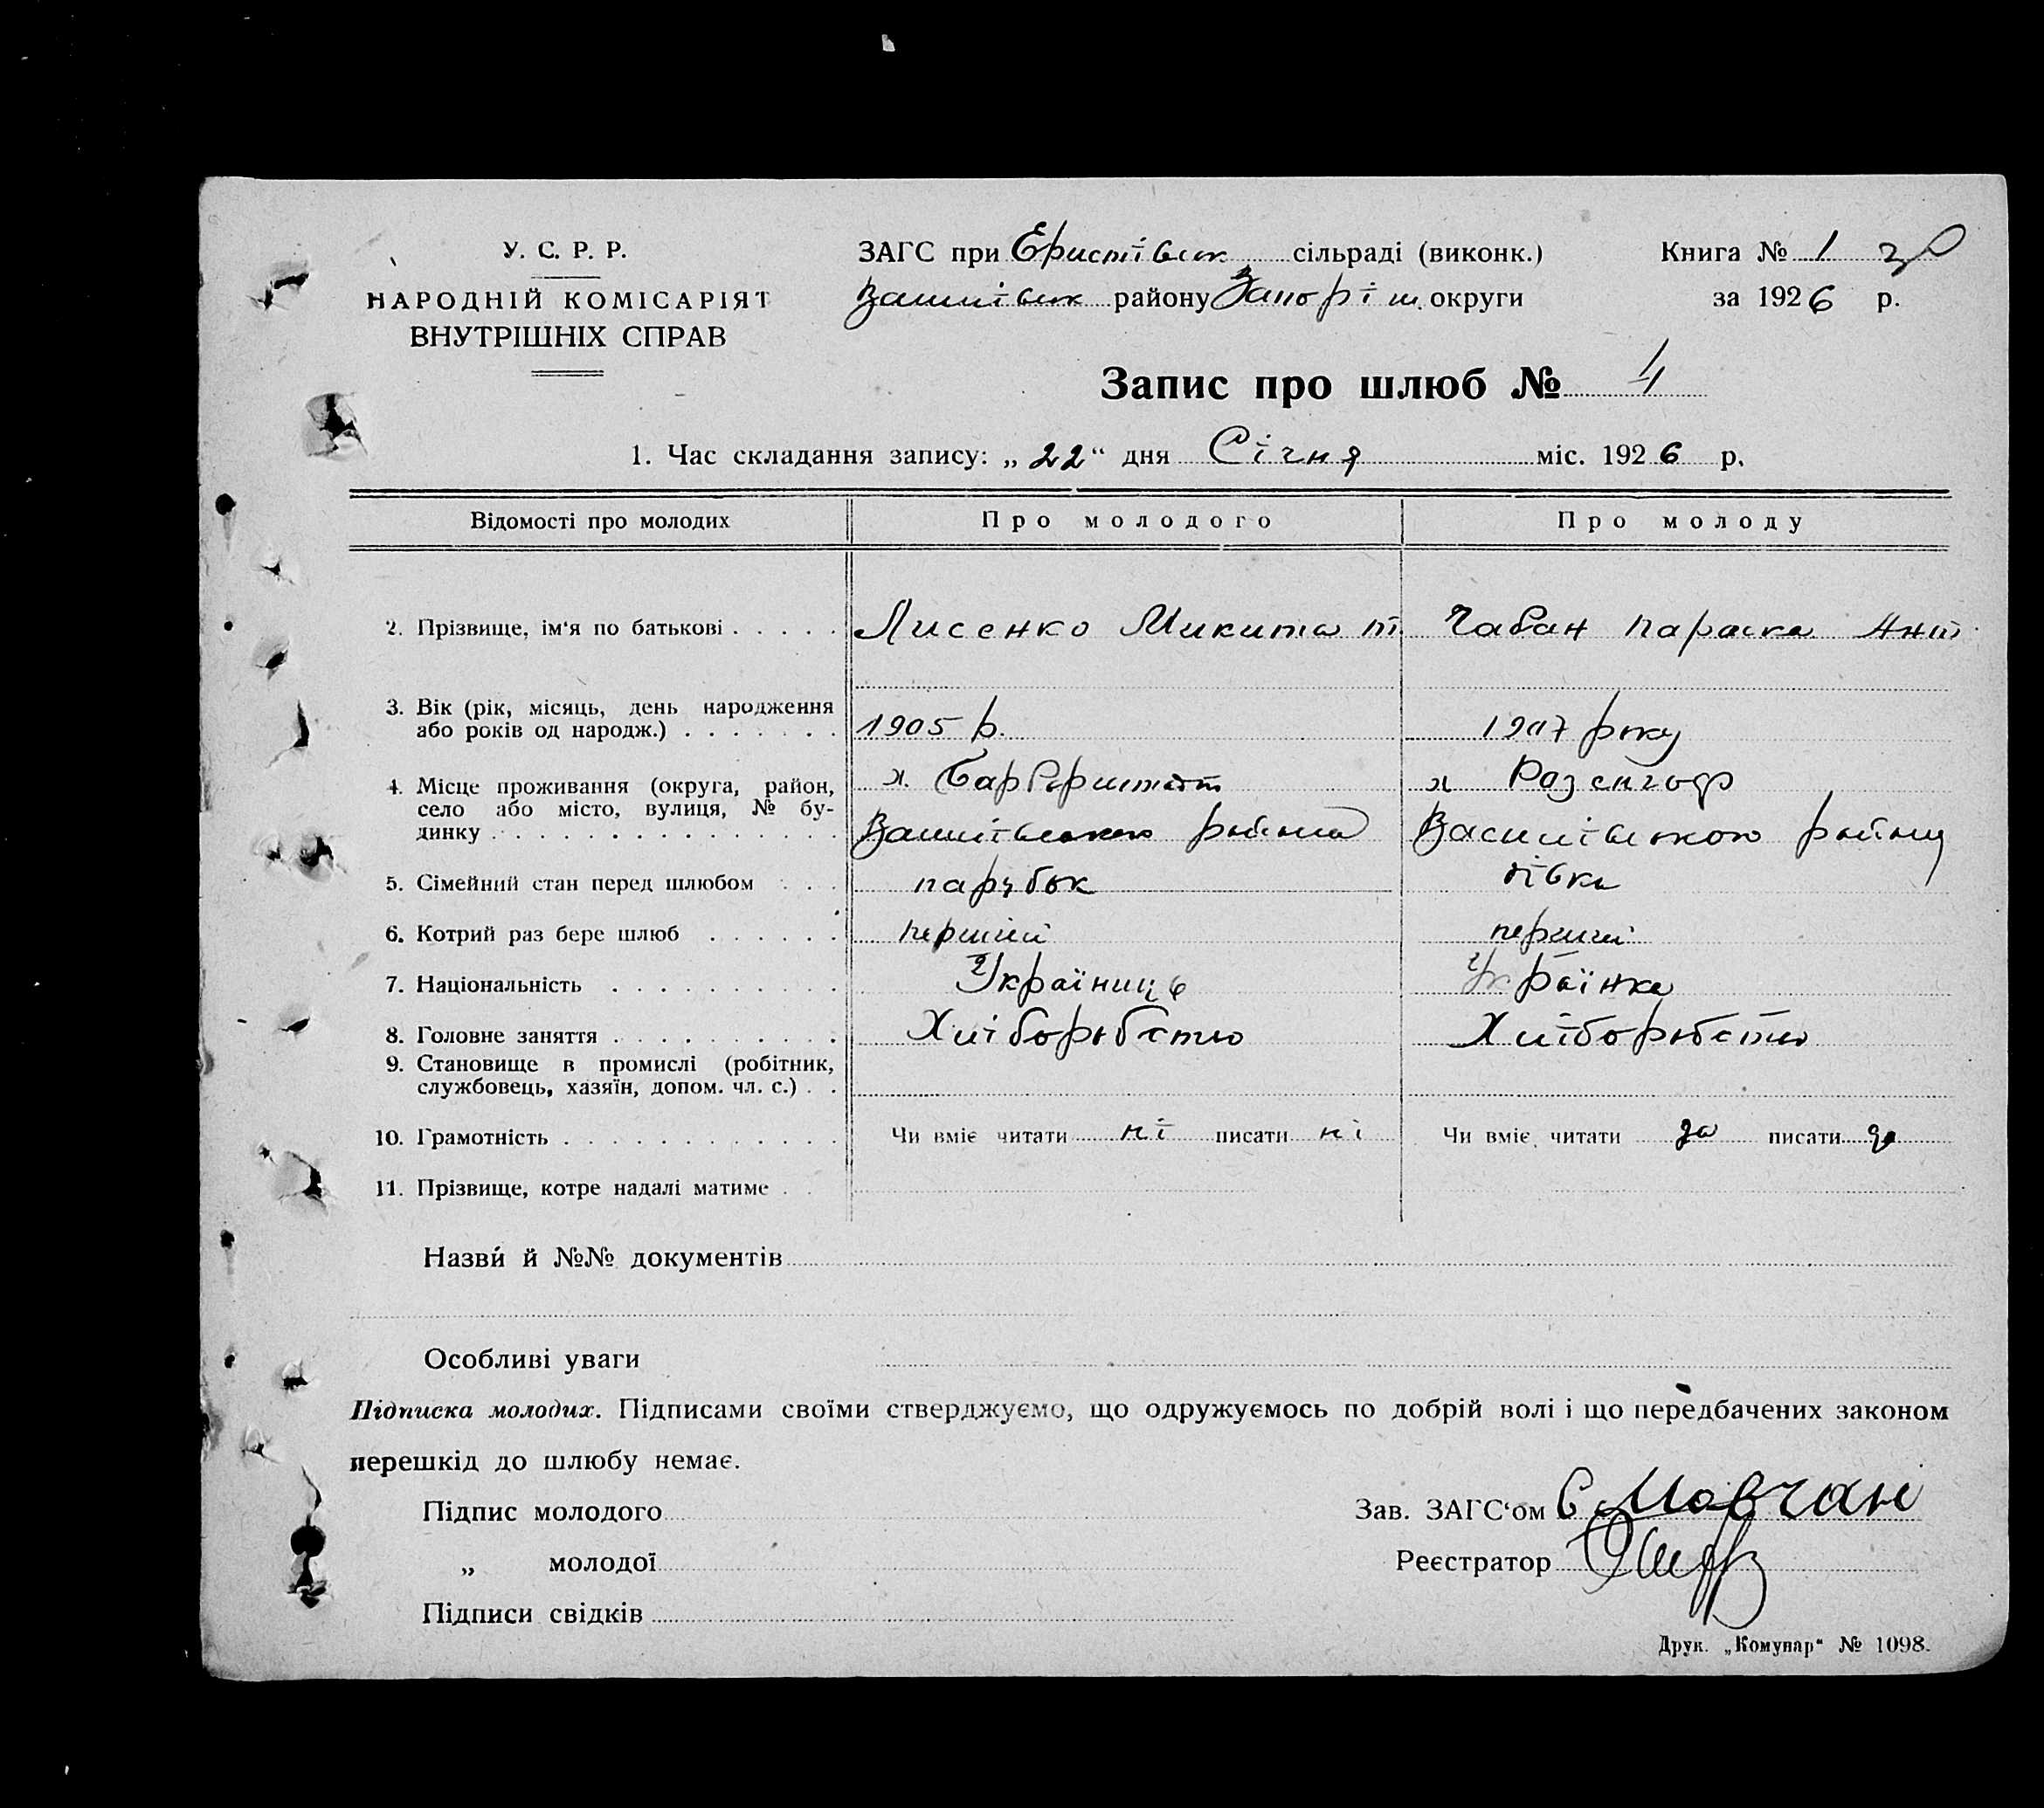 У. С. Р. Р.
НАРОДНІЙ КОМІСАРІЯТ
ВНУТРІШНІХ СПРАВ
ЗАГС при Еристівськ сільраді (виконк.)
Василівськ району Запоріж. округи
Книга № 1
за 1926 р.
Запис про шлюб № 4
1. Час складання запису: „22“ дня Січня міс. 1926 р.
Відомості про молодих Про молодого Про молоду
2. Прізвище, ім‘я по батькові Лисенко Микита Т. Чабан Параска Ант
3. Вік (рік, місяць, день народження
або років од народж.) 1905 р. 1907 року
4. Місце проживання (округа, район, х. х Розенгоф
село або місто, вулиця, № бу-
динку Василівського району Василівського району
5. Сімейний стан перед шлюбом парубок дівка
6. Котрий раз бере шлюб перший перший
7. Національність Українець Українка
8. Головне заняття Хліборобство Хліборобство
9. Становище в промислі (робітник,
службовець, хазяїн, допом. чл. с.)
10. Грамотність Чи вміє читати ні писати ні Чи вміє читати да писати да
11. Прізвище, котре надалі матиме
Назви́ й №№ документів
Особливі уваги
Підписка молодих. Підписами своїми стверджуємо, що одружуємось по добрій волі і що передбачених законом
перешкід до шлюбу немає.
Підпис молодого
„ молодої
Підписи свідків
Зав. ЗАГС‘ом Мовчан
Реєстратор
Друк. „Комунар“ № 1098.